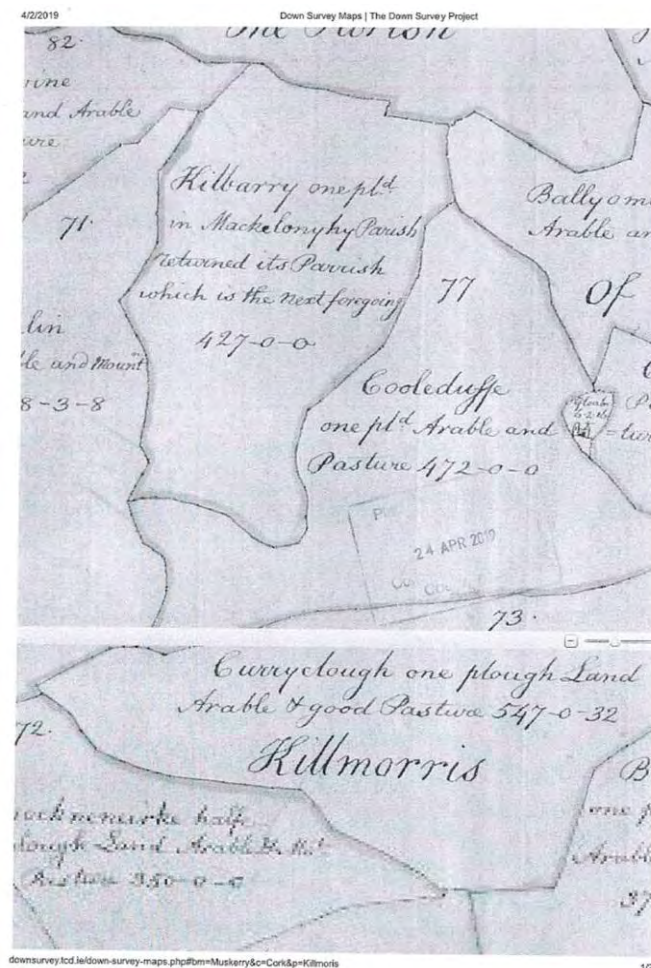 4/2/2019
Down Survey Maps | The Down Survey Project
The Parish
82.
and Arable
ure
71.
Kilbarry one pld
in Mackelonyhy Parish
returned its Parrish
which is the next foregoing
427-0-0
77
Ballyom
Arable an
Of
lin
le and Mount
8-3-8
Cooleduffe
one pld Arable and
Pasture 472-0-0
Gleab
24 APR 2019
73.
Curryclough one plough Land
Arable & good Pasture 547-0-32
72.
Killmorris
B
ocknenurke halfe
lough Land Arable
350-0-0
one p
Arable
37
downsurvey.tcd.ie/down-survey-maps.php#bm=Muskerry&c=Cork&p=Killmoris